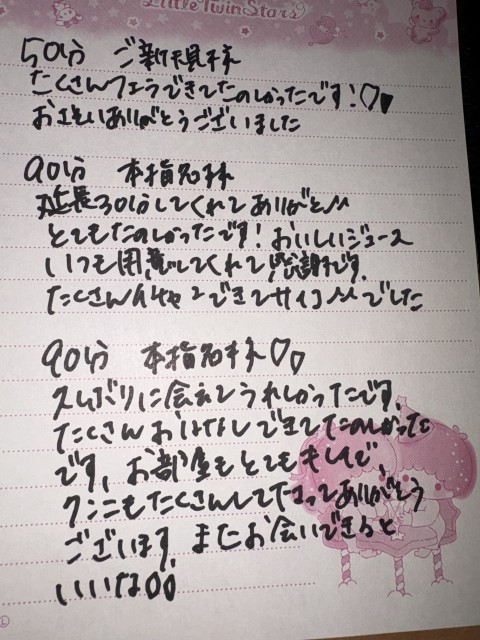 Little Twin Stars
50分 ご新規様
たくさんフェラできてたのしかったです！♡♥
お誘いありがとうございました
90分 本指名様
延長30分してくれてありがとう
とてもたのしかったです！おいしいジュース
いつも用意してくれて感謝です。
たくさんイチャ2できてサイコーでした
90分 本指名様♡♡
久しぶりに会えてうれしかったです。
たくさんおはなしできてたのしかった
です。お部屋もとてもキレイで、
クンニもたくさんして下さってありがとう
ございます。またお会いできると
いいな